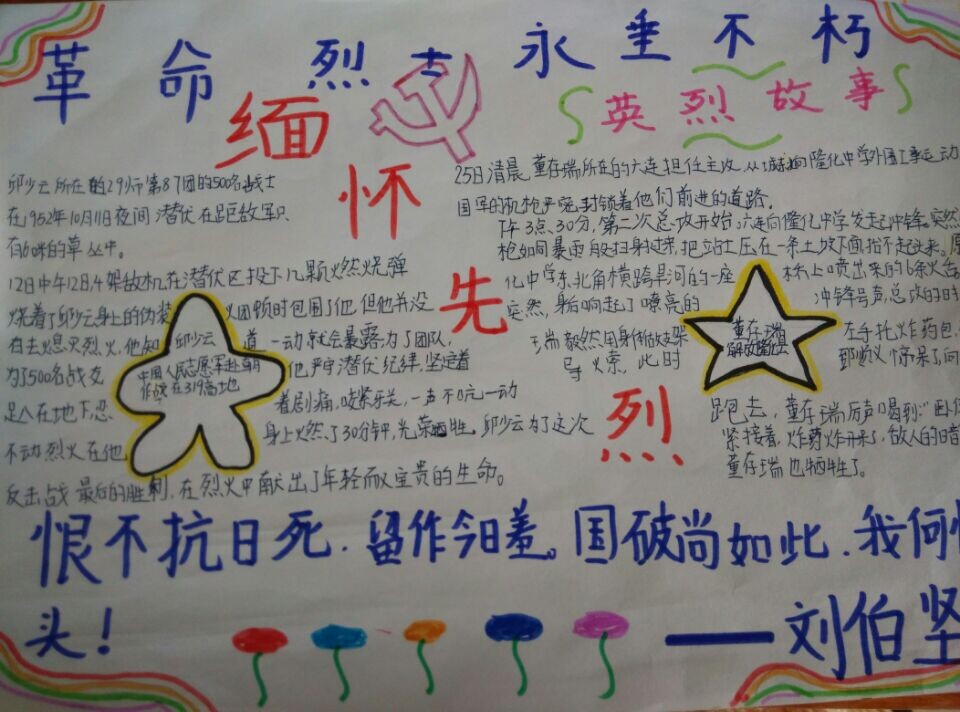 革命烈士永垂不朽
缅怀先烈
英烈故事
邱少云所在的29师第87团的500名战士
在1952年10月11日夜间潜伏在距敌军只
有60米的草丛中。
12日中午12时,4架敌机在潜伏区投下几颗燃烧弹
烧着了邱少云身上的伪装 火团顿时包围了他,但他并没
有去熄灭烈火,他知道 一动就会暴露,为了团队,
为了500名战友 他严守潜伏纪律,坚定着
足人在地下,忍着剧痛,咬紧牙关,一声不吭一动
不动烈火在他身上燃烧了30分钟,光荣牺牲,邱少云为了这次
反击战最后的胜利,在烈火中献出了年轻而又宝贵的生命。
邱少云
中国人民志愿军赴朝
作战在391高地
25日清晨,董存瑞所在的六连担任主攻,从 向隆化中学外围工事运动
国军的机枪严密封锁着他们前进的道路.
下午3点30分,第二次总攻开始,六连向隆化中学发起冲锋,突然
枪如同暴雨般扫射过来,把 压在一条土坡下面抬不起头来。
化中学东北角横跨旱河的一座 桥上喷出来的6条火舌
突然,身后响起了嘹亮的 冲锋号声,总攻的时
瑞毅然用身体做支架 左手托炸药包,
导火索,此时 惊呆了
跑去,董存瑞厉声喝到:"卧倒
紧接着,炸药炸开来了,敌人的暗
董存瑞也牺牲了。
董存瑞
解放隆化
恨不抗日死.留作今日羞。国破尚如此.我何惜
头!
——刘伯坚